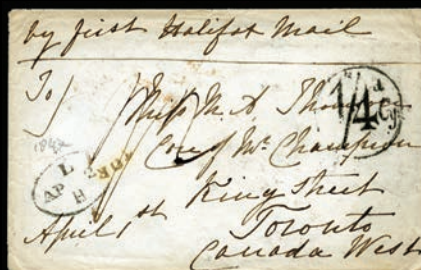 by first Halifax Mail
To
Miss M A
Care of Mr Champion
King Street
Toronto
Canada West
April 1st
1/4
Cy
1842
L
AP 2
H